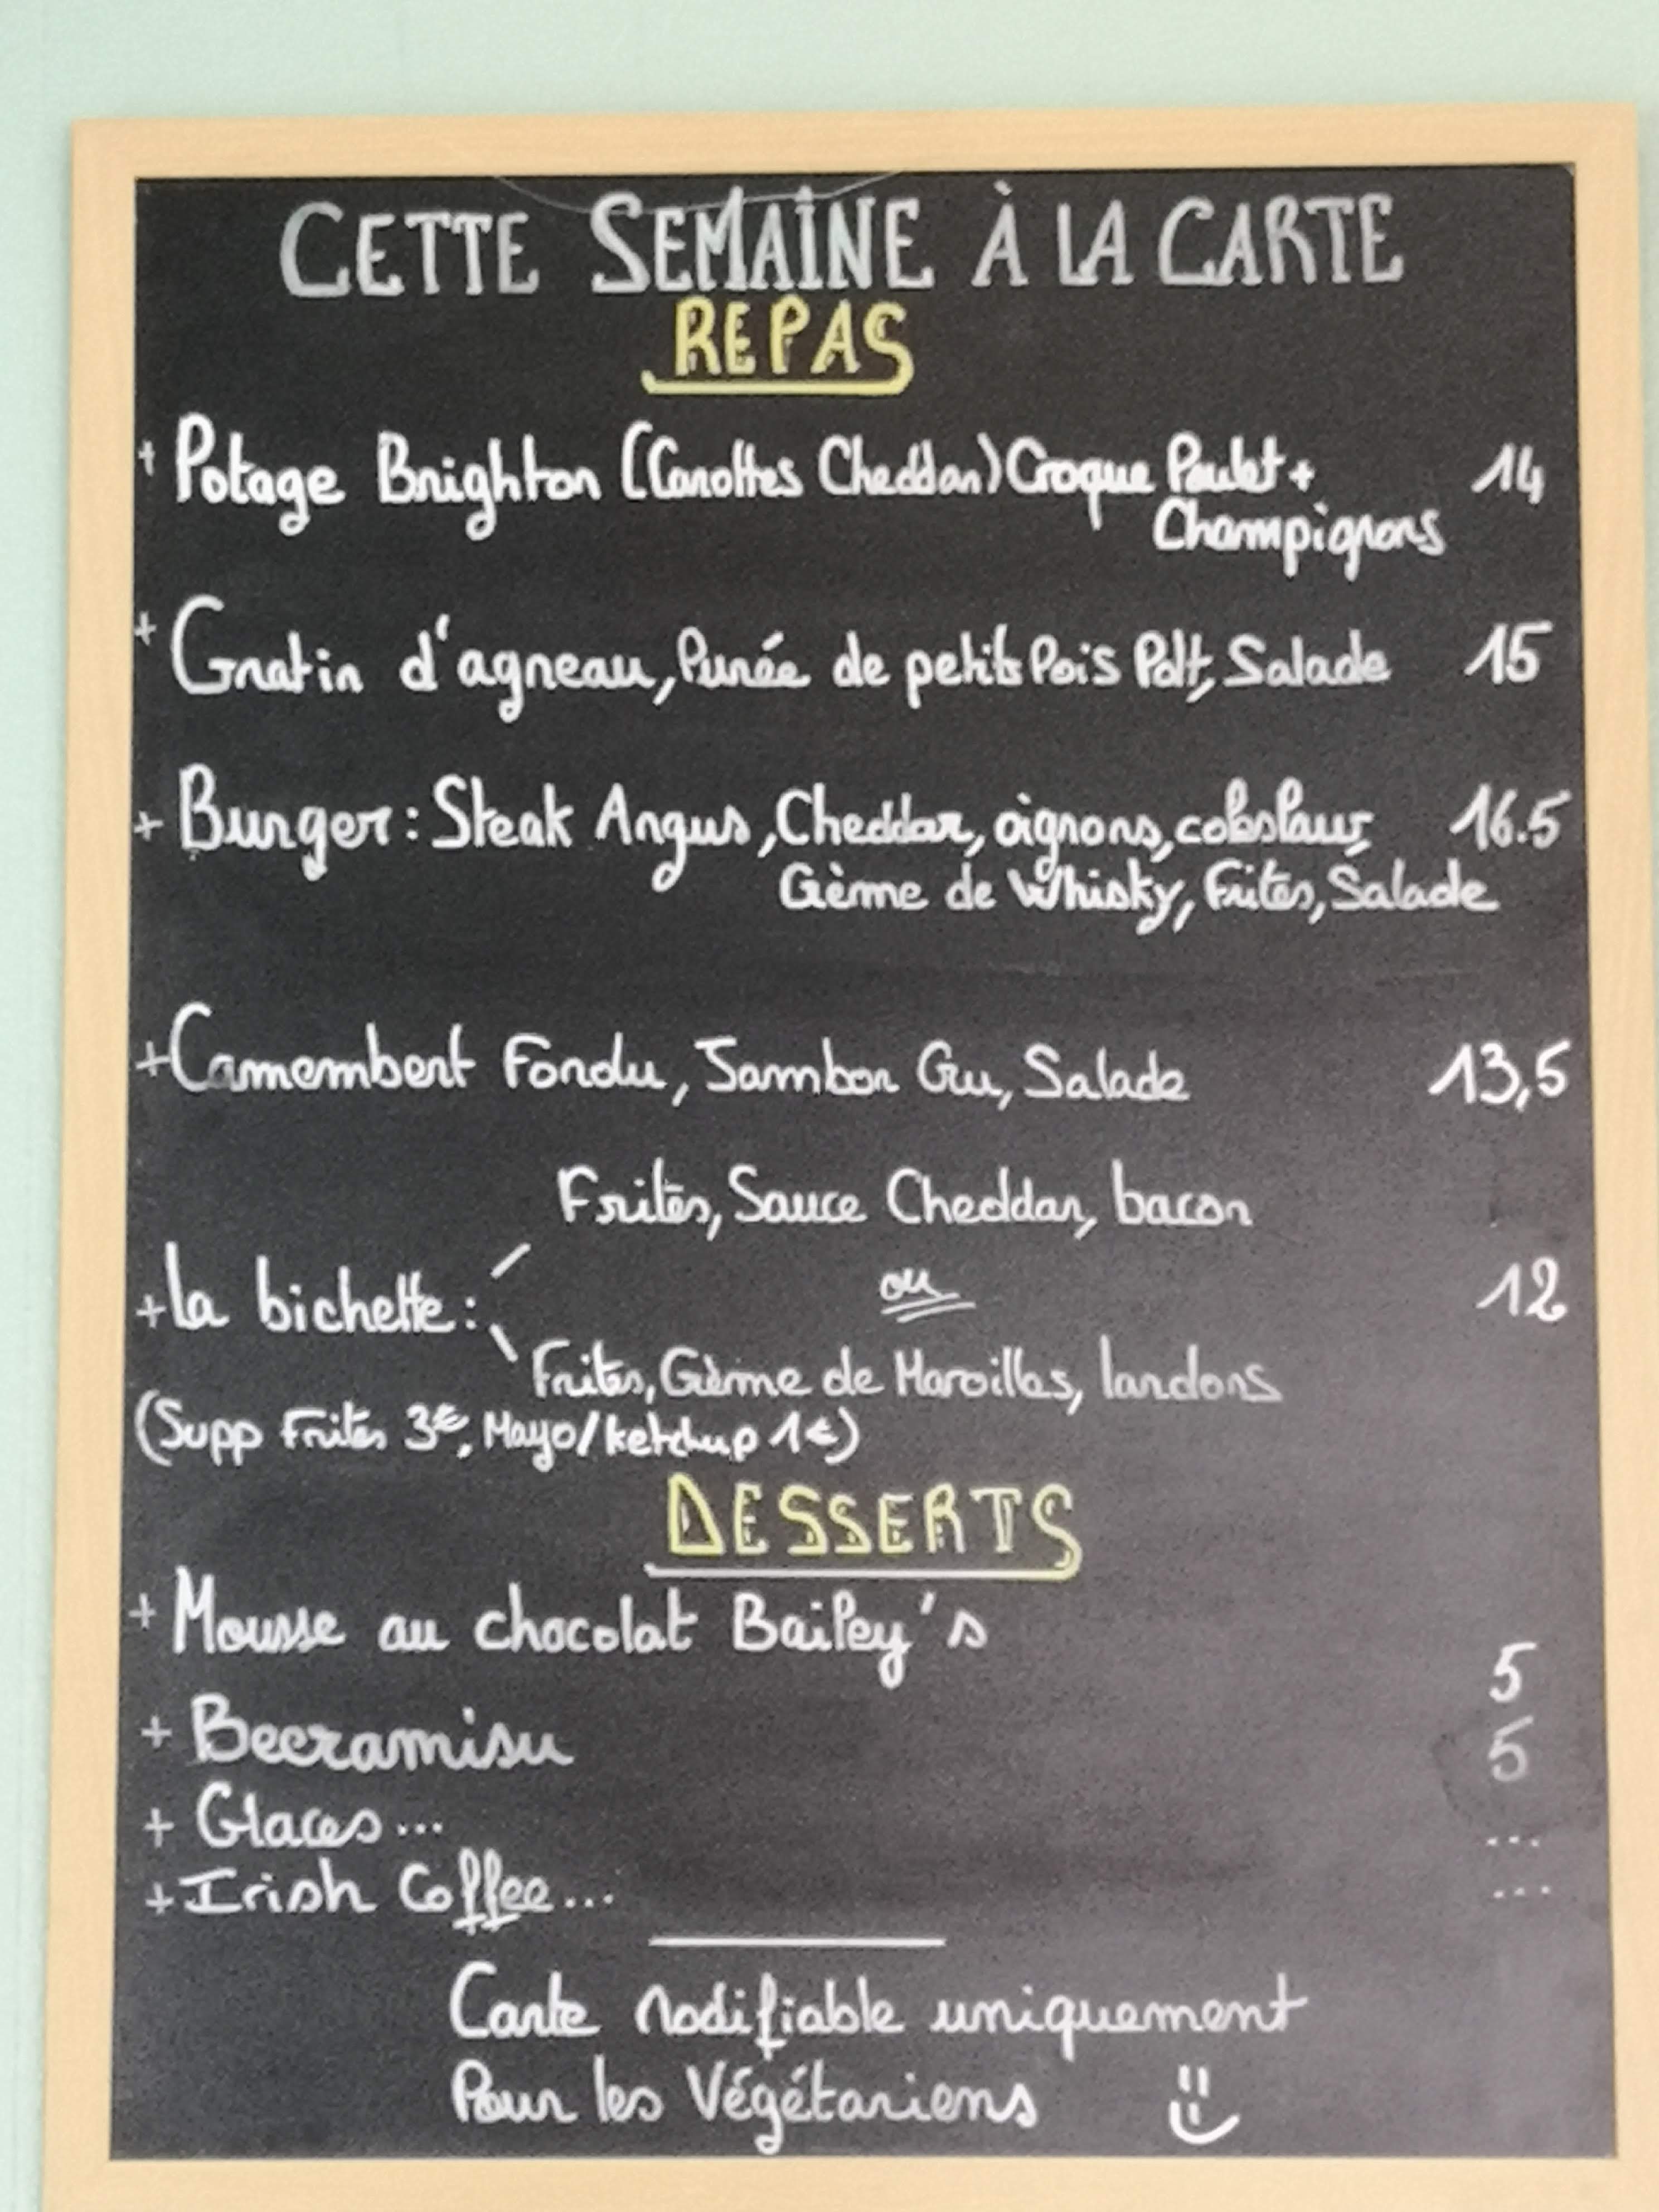 CETTE SEMAINE À LA CARTE
REPAS
+ Potage Brighton (Carottes Cheddar) Croque Poulet + 14
Champignons
+ Gratin d'agneau, Purée de petits Pois Pdt, Salade 15
+ Burger : Steak Angus, Cheddar, oignons, coleslaw, 16.5
Crème de Whisky, Frites, Salade
+ Camembert Fondu, Jambon Cru, Salade 13,5
Frites, Sauce Cheddar, bacon
+ la bichette : ou 12
Frites, Crème de Maroilles, lardons
(Supp Frites 3€, Mayo/ketchup 1€)
DESSERTS
+ Mousse au chocolat Bailey's 5
+ Beeramisu 5
+ Glaces... ...
+ Irish Coffee... ...
Carte modifiable uniquement
Pour les Végétariens